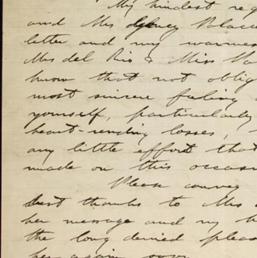 My kindest reg
and Mrs
letter and my warmes
Mrs del Rio & Miss
know that not oblig
most sincere feeling
yourself, particularly
heart-rending losses,
any little effort that
made on this occasi
Please convey
best thanks to Mrs
her message and my h
the long denied pleas
her again soon